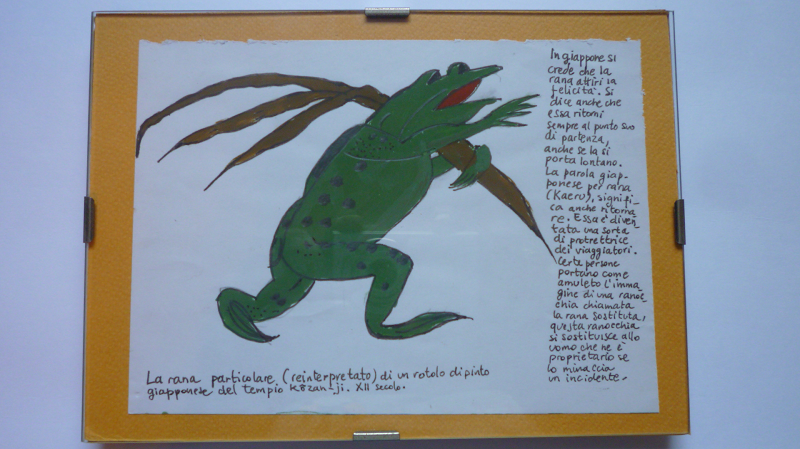 In giappone si
crede che la
rana attiri la
felicità. Si
dice anche che
essa ritorni
sempre al punto suo
di partenza,
anche se la si
porta lontano.
La parola giap-
ponese per rana
(Kaeru), signifi-
ca anche ritorna
re. Essa è diven-
tata una sorta
di protrettrice
dei viaggiatori.
Certe persone
portano come
amuleto l'imma
gine di una ranoc
chia chiamata
la rana sostituta,
questa ranocchia
si sostituisce allo
uomo che ne è
proprietario se
lo minaccia
un incidente.
La rana particolare (reinterpretato) di un rotolo dipinto
giapponese del tempio Kōzan-ji. XII secolo.